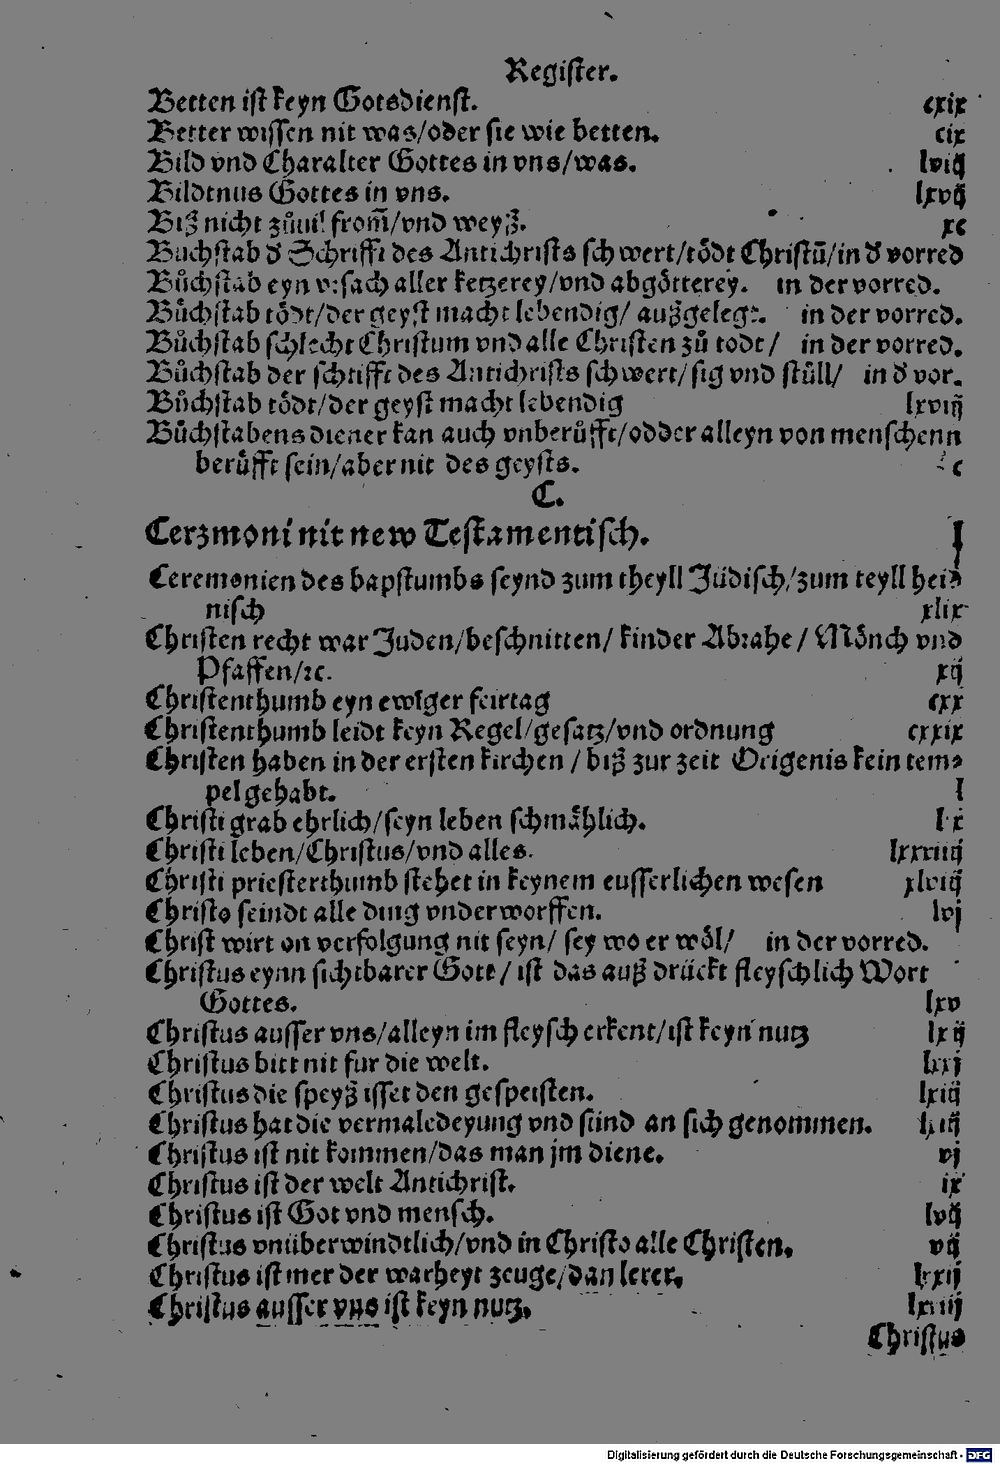 Register.
Betten ist keyn Gotsdienst. cxix
Better wissen nit was/oder sie wie betten. cix
Bild vnd Charakter Gottes in vns/was. lviij
Bildtnus Gottes in vns. lxvij
Biß nicht zůuil from̃/vnd weyß. xc
Bůchstab d̕ Schrifft des Antichrists schwert/tödt Christũ/in d̕ vorred
Bůchstab eyn vrsach aller ketzerey/vnd abgötterey. in der vorred.
Bůchstab tödt/der geyst macht lebendig/ außgelegt. in der vorred.
Bůchstab schlecht Christum vnd alle Christen zů todt/ in der vorred.
Bůchstab der schrifft des Antichrists schwert/sig vnd stůll/ in d̕ vor.
Bůchstab tödt/der geyst macht lebendig lxviij
Bůchstabens diener kan auch vnberůfft/odder alleyn von menschenn
berůfft sein/aber nit des geysts. c
C.
Cerzmoni nit new Testamentisch. l
Ceremonien des bapstumbs seynd zum theyll Jüdisch/zum teyll hei⸗
nisch xlix
Christen recht war Juden/beschnitten/ kinder Abrahe/ Mönch vnd
Pfaffen/ꝛc. xij
Christenthumb eyn ewiger feirtag cxx
Christenthumb leidt keyn Regel/gesatz/vnd ordnung cxxix
Christen haben in der ersten kirchen/ biß zur zeit Origenis kein tem⸗
pel gehabt. l
Christi grab ehrlich/seyn leben schmählich.
Christi leben/Christus/vnd alles. lxxxiiij
Christi priesterthumb stehet in keynem eusserlichen wesen xlviij
Christo seindt alle ding vnderworffen. lvj
Christ wirt on verfolgung nit seyn/ sey wo er wöl/ in der vorred.
Christus eynn sichtbarer Gott/ ist das auß drückt fleyschlich Wort
Gottes. lxv
Christus ausser vns/alleyn im fleysch erkent/ist keyn nutz lxij
Christus bitt nit fur die welt. lxxj
Christus die speyß isset den gespeisten. lxiij
Christus hat die vermaledeyung vnd sünd an sich genommen.
Christus ist nit kommen/das man jm diene. vj
Christus ist der welt Antichrist. ix
Christus ist Got vnd mensch. lvij
Christus vnüberwindtlich/vnd in Christo alle Christen. vij
Christus ist mer der warheyt zeuge/dan lerer. lxxij
Christus ausser vns ist keyn nutz.
Christus
Digitalisierung gefördert durch die Deutsche Forschungsgemeinschaft - DFG